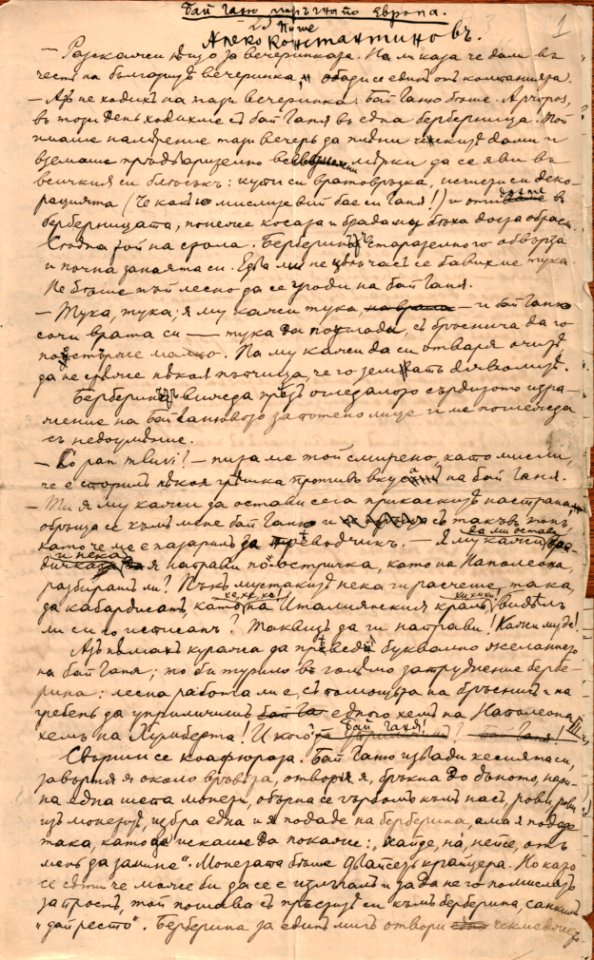 Бай Ганю тръгна по Европа.
отъ
Алеко Константиновъ.
1
— Разскажи нѣщо за вечеринката. Нали каза че дали въ
честь на българитѣ вечеринка, обади се единъ отъ компанията.
— Азъ не ходихъ на тази вечеринка. Бай Ганю бѣше. Apropos,
въ този день ходихме съ бай Ганя въ една берберница. Той
имаше намѣрение тази вечерь да плѣни чешкитѣ дами и
вземаше предварително всевъзможни мѣрки да се яви въ
всичкия си блѣсъкъ: купи си вратовръзка, изчисти си деко-
рацията (Че като мислите вий бае си Ганя!) и дойде въ
берберницата, понеже косата и брадата му бѣха доста обрасли.
Седна той на стола. Берберинътъ старателно го обвърза
и почна занаята си. Едва ли не цѣлъ часъ се бавихме тука.
Не бѣше тъй лесно да се угоди на бай Ганя.
— Тука, тука; я му кажи тука, — и бай Ганю
сочи врата си — тука да поглади, съ бръснича да го
постърже малко. Па му кажи да си отваря очитѣ
да не срѣже нѣкоя пъпчица, че го зематъ дяволитѣ.
Берберинътъ вижда прѣзъ огледалото сърдитото изра-
жение на Бай Ганювото запотено лице и ме поглежда
съ недоумѣние.
— Co pan mluvi? — пита ме той смирено, като мисли,
че е сторилъ нѣкоя грѣшка противъ вкуса на бай Ганя.
— Ти я му кажи да остави сега приказкитѣ настрана, —
обръща се къмъ мене бай Ганю и съ такъвъ тонъ,
като че ме е пазарилъ за прѣводчикъ. — Я му кажи да ми остави бра-
дичка и нека я направи по остричка, като на Наполеона,
разбирашъ ли? Пъкъ мустакитѣ нека ги расчеше, така,
да кабардисатъ, като на Италиянския краль, хе, хе, хе! хи хи хи! видѣлъ
ли си го исписанъ? Такивазъ да ги направи! Кажи му де!
Азъ нѣмахъ куража да прѣведѫ буквално желанието
на бай Ганя; то би турило въ голѣмо затруднение бербе-
рина: лесна работа ли е, съ помощьта на бръсничъ и на
гребень да уприличишъ едного хемъ на Наполеона III,
хемъ на Хумберта! И кого? — Бай Ганя!
Свърши се коафюрата. Бай Ганю извади кесията си,
завъртя я около връвьта, отвори я, бръкна до дъното, напъл-
на една шепа монети, обърна се гърбомъ къмъ насъ, рови, рови
изъ монетитѣ, избра една и я подаде на берберина, ама я подаде
така, като че искаше да покаже: „хайде, на, нейсе, отъ
мене да замине". Монетата бѣше двайсетъ крайцера. Но като
се сѣти че може би да се е излъгалъ и за да не го помислятъ
за простъ, той помаха съ пръститѣ си къмъ берберина, санкимъ
„дай ресто". Берберина за единъ мигъ отвори чекмеджето,